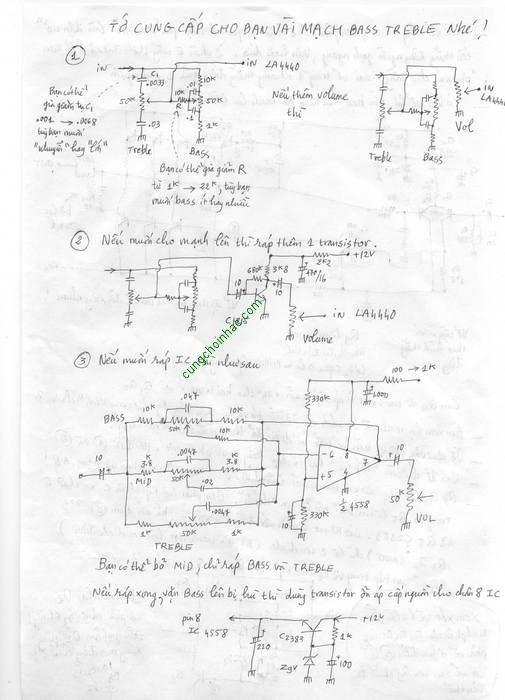 TỚ CUNG CẤP CHO BẠN VÀI MẠCH BASS TREBLE Nhé!
1
iN
iN LA4440
C1
.0033
10K
.01
10K
50K
R
50K
.1
.03
1K
Treble
Bass
Bạn có thể
gia giảm trị C1
.001 → .0068
tùy bạn muốn
Bạn có thể gia giảm R
từ 1K → 22K, tùy bạn
muốn bass ít hay nhiều
Nếu thêm volume
thì
iN
LA4440
Vol
Treble
Bass
2 Nếu muốn cho mạnh lên thì ráp thêm 1 transistor.
+12V
2K2
680K
3K8
470/16
10
10
iN LA4440
Volume
cungchoinhac.com
3 Nếu muốn ráp IC như sau
100 → 1K
1000
330K
.047
BASS
10K
10K
50K
10K
.0047
10
3.8
K
3.8
K
MiD
50K
.02
.0047
1K
50K
1K
TREBLE
-6
8
7
+5
4
1/2 4558
10
330K
10
50K
VOL
Bạn có thể bỏ MiD, chỉ ráp BASS và TREBLE.
Nếu ráp xong, vặn Bass lên bị hú thì dùng transistor ổn áp cấp nguồn cho chân 8 IC
pin 8
IC 4558
+12V
220
C2383
1K
Z9V
100